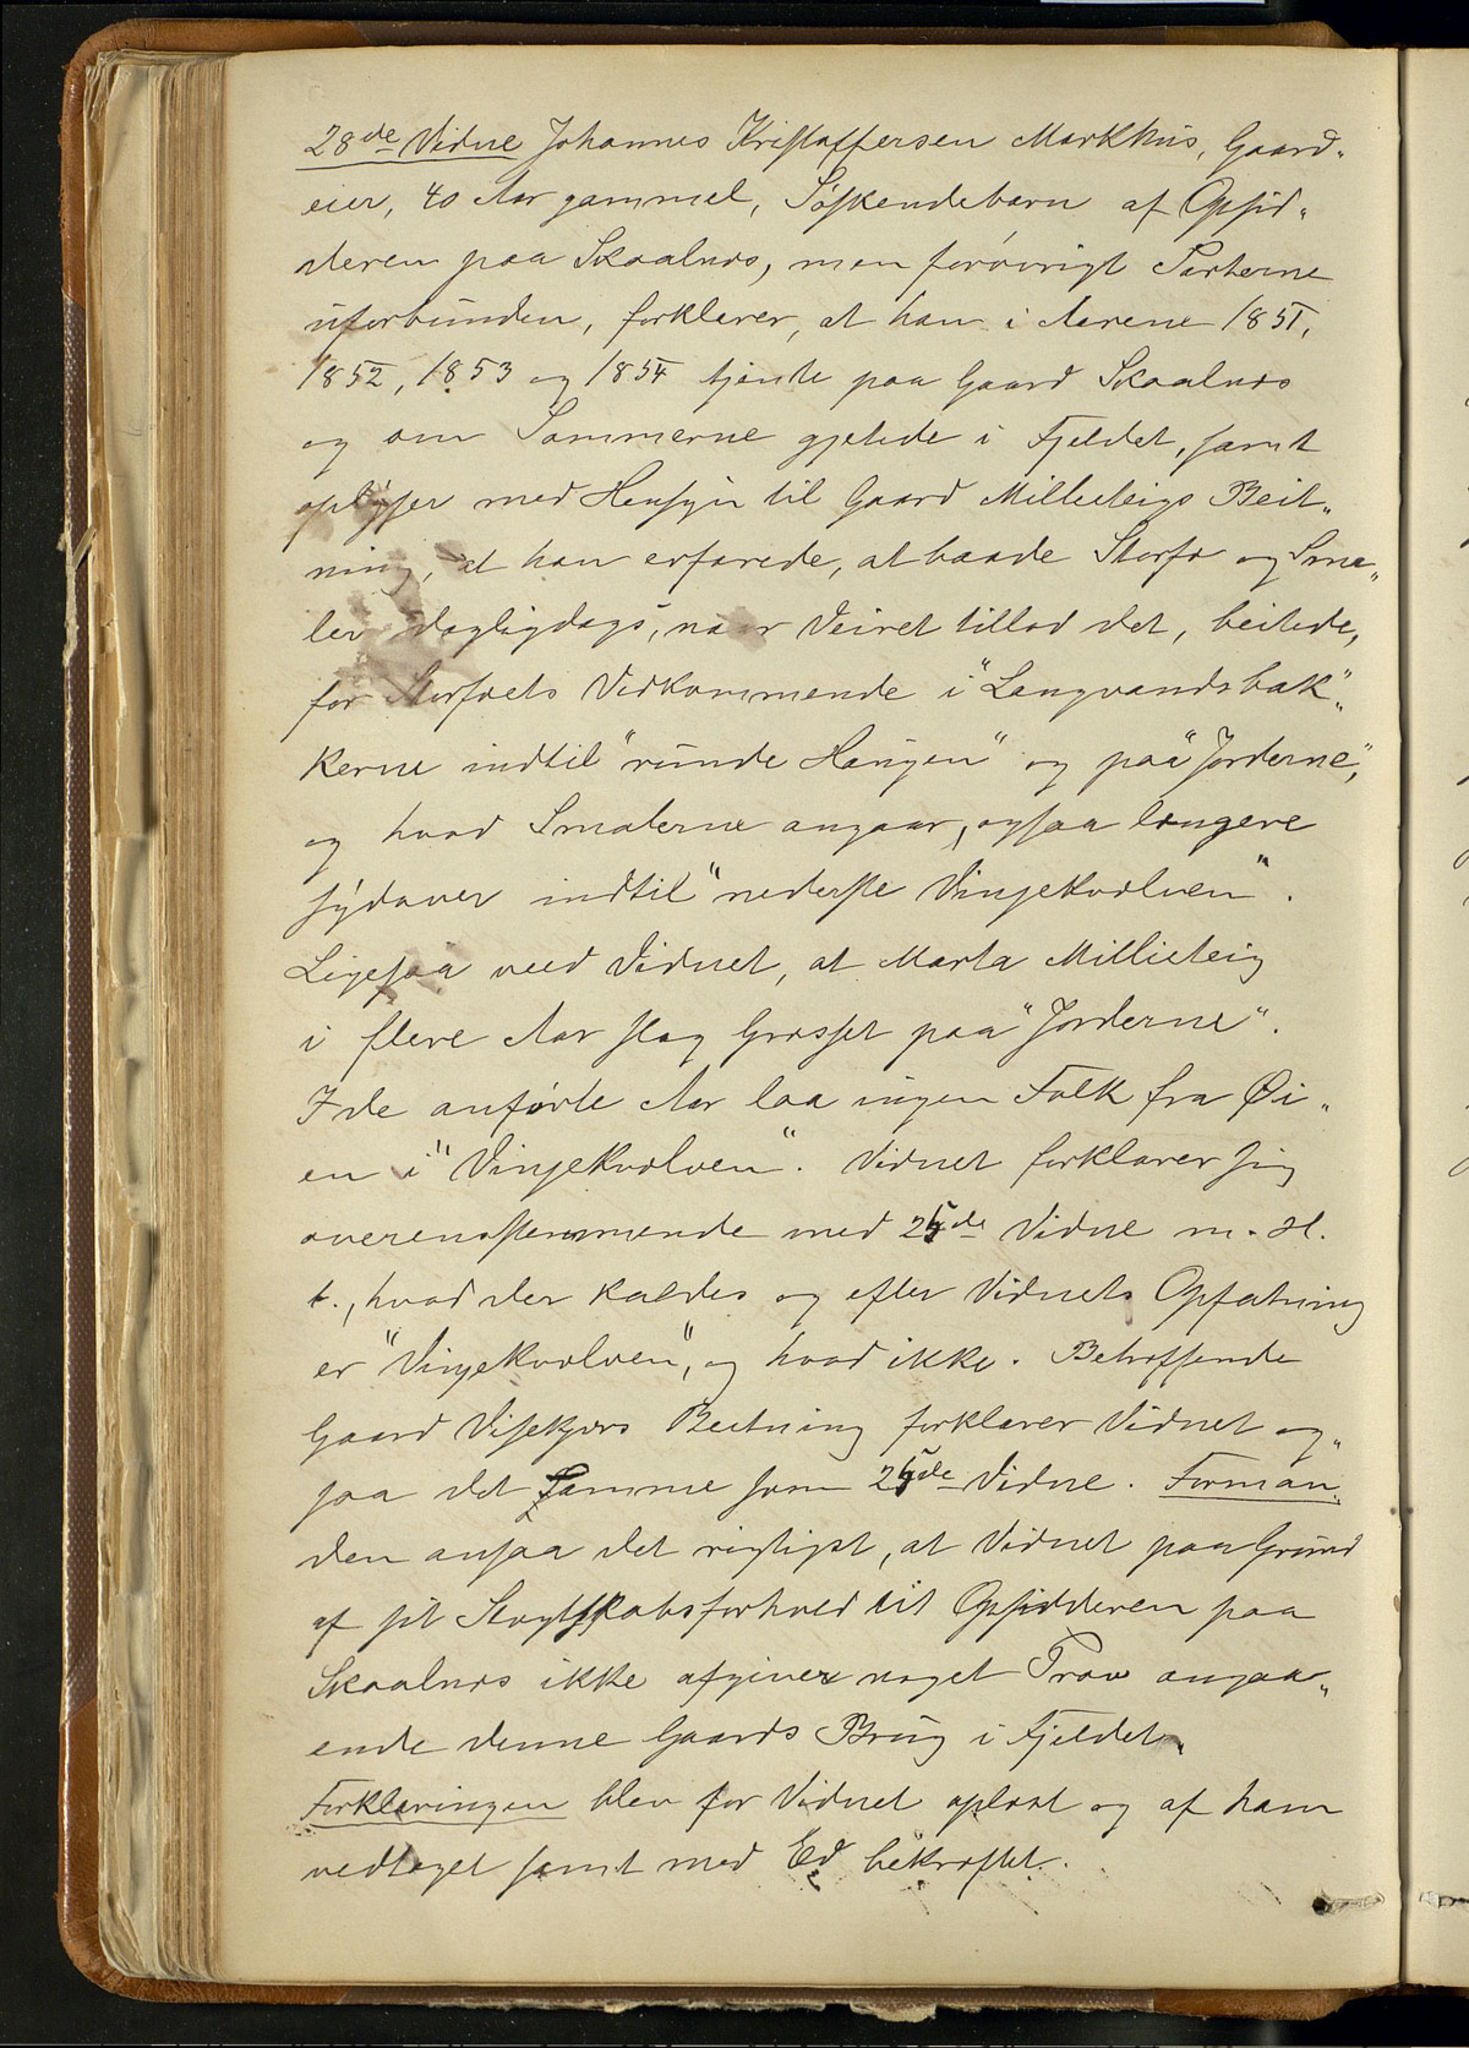 28de Vidne Johannes Kristoffersen Markhus, Gaard„
eier, 40 Aar gammel, Søskendebarn af Opsid„
deren paa Skaalnæs, men forøvrigt Parterne
uforbunden, forklarer, at han i Aarene 1851,
1852, 1853 og 1854 tjente paa Gaard Skaalnæs
og om Sommerne gjetede i Fjeldet, samt
oplyser med Hensyn til Gaard Millieteigs Beit„
ning, at han erfarede, at baade Storfæ og Sma„
ler dagligdags, naar Veiret tillod det, beitede,
for Storfæets Vedkommende i "Langvandsbak„
kerne indtil "runde Haugen" og paa "Jorderne",
og hvad Smalerne angaar, ogsaa længere
sydover indtil "nederste Vinjekvolven".
Ligesaa veed Vidnet, at Marta Millieteig
i flere Aar slog Græsset paa "Jorderne".
I de anførte Aar laa ingen Folk fra Øi„
en i "Vinjekvolven". Vidnet forklarer sig
overensstemmende med 25de Vidne m. H.
t., hvad der kaldes og efter Vidnets Opfatning
er "Vinjekvolven", og hvad ikke. Betræffende
Gaard Visekjærs Beitning forklarer Vidnet og„
saa det samme som 25de Vidne. Forman„
den ansaa det rigtigst, at Vidnet paa Grund
af sit Slægtskabsforhold til Opsidderen paa
Skaalnæs ikke afgiver noget Prov angaa„
ende denne Gaards Brug i Fjeldet.
Forklaringen blev for Vidnet oplæst og af ham
vedtaget samt med Ed bekræftet.